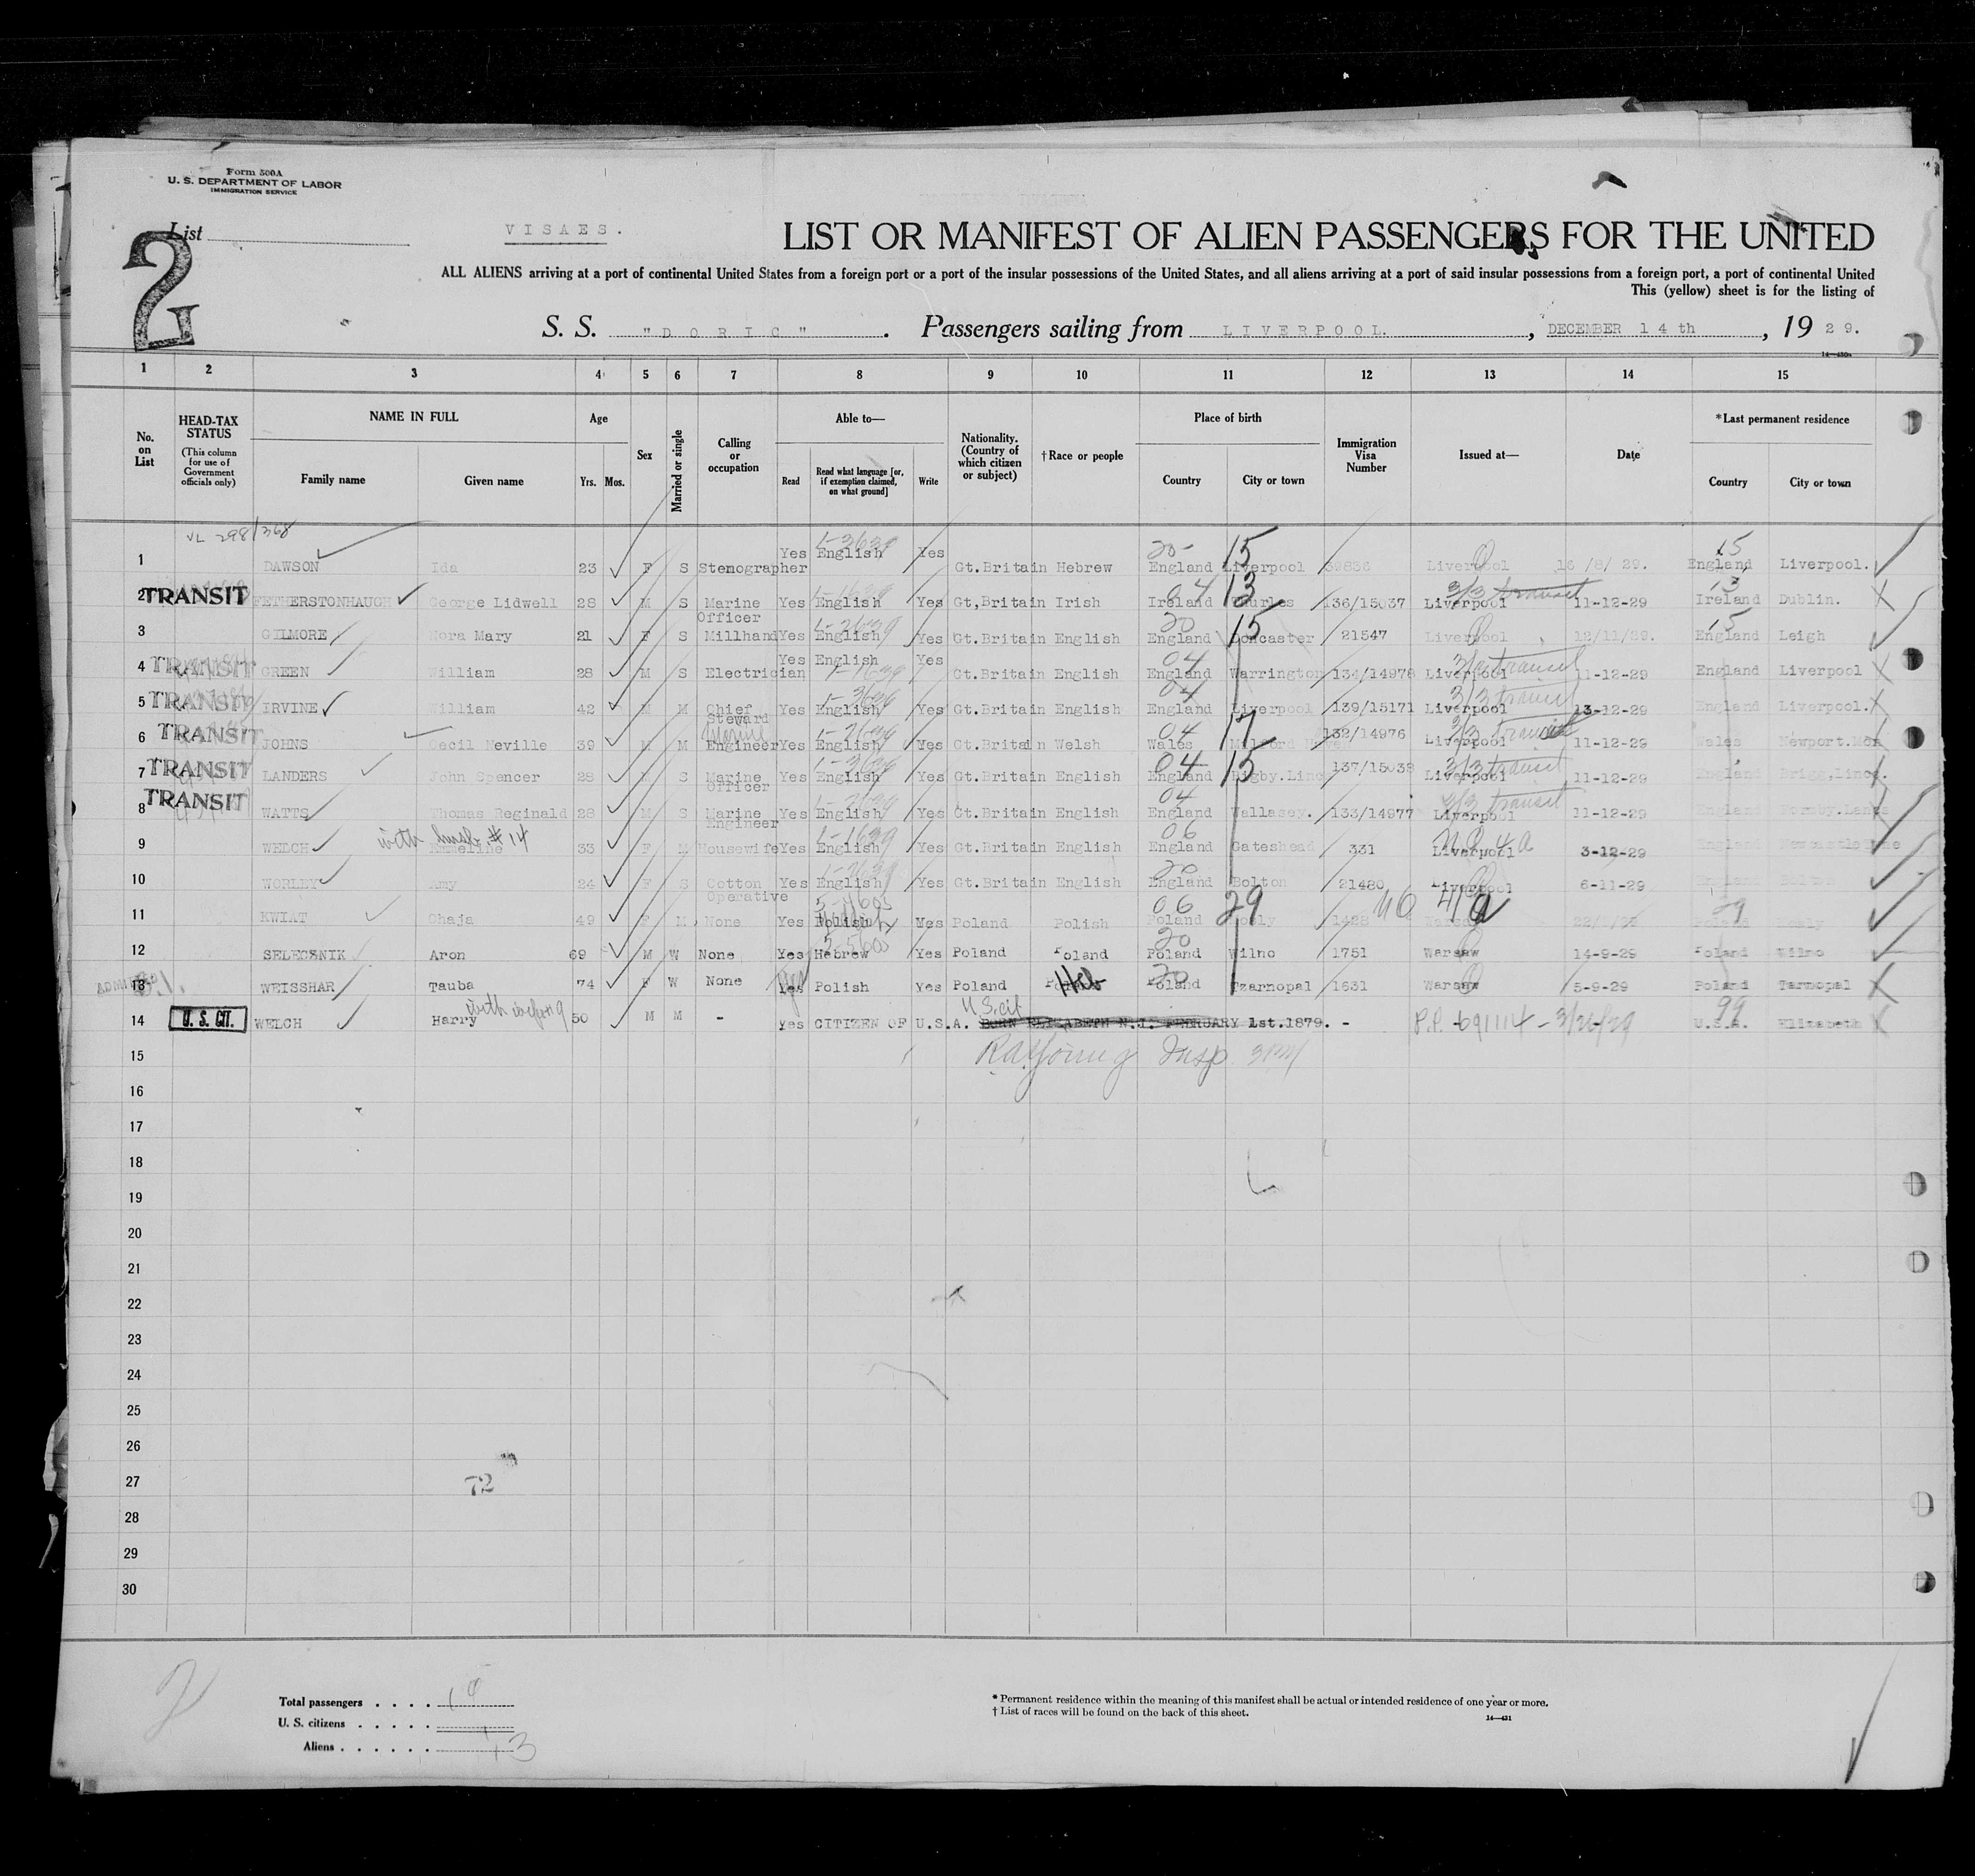 Form 500A
U. S. DEPARTMENT OF LABOR
IMMIGRATION SERVICE
List
2
VISAES.
LIST OR MANIFEST OF ALIEN PASSENGERS FOR THE UNITED
ALL ALIENS arriving at a port of continental United States from a foreign port or a port of the insular possessions of the United States, and all aliens arriving at a port of said insular possessions from a foreign port, a port of continental United
This (yellow) sheet is for the listing of
S. S. "DORIC". Passengers sailing from LIVERPOOL. , DECEMBER 14th , 1929.
14-430a
1 2 3 4 5 6 7 8 9 10 11 12 13 14 15
No. on List
HEAD-TAX STATUS (This column for use of Government officials only)
NAME IN FULL
Family name Given name
Age
Yrs. Mos.
Sex
Married or single
Calling or occupation
Able to—
Read Read what language [or, if exemption claimed, on what ground] Write
Nationality. (Country of which citizen or subject)
† Race or people
Place of birth
Country City or town
Immigration Visa Number
Issued at—
Date
* Last permanent residence
Country City or town
VL 298/368
1 DAWSON Ida 23 F S Stenographer Yes English Yes Gt.Britain Hebrew England Liverpool Liverpool 16 /8/ 29. England Liverpool.
2 TRANSIT FETHERSTONHAUGH George Lidwell 28 M S Marine Officer Yes English Yes Gt,Britain Irish Ireland 136/15037 Liverpool 3/3 transit 11-12-29 Ireland Dublin.
3 GILMORE Nora Mary 21 F S Millhand Yes English Yes Gt.Britain English England Doncaster 21547 Liverpool 12/11/29. England Leigh
4 TRANSIT GREEN William 28 M S Electrician Yes English Yes Gt.Britain English England Warrington 134/14978 Liverpool 3/3 transit 11-12-29 England Liverpool
5 TRANSIT IRVINE William 42 M M Chief Steward Yes English Yes Gt.Britain English England Liverpool 139/15171 Liverpool 3/3 transit 13-12-29 England Liverpool.
6 TRANSIT JOHNS Cecil Neville 39 M M Marine Engineer Yes English Yes Gt.Britain Welsh Wales Milford 132/14976 Liverpool 3/3 transit 11-12-29 Wales Newport.Mon
7 TRANSIT LANDERS John Spencer 28 M S Marine Officer Yes English Yes Gt.Britain English England 137/15038 Liverpool 3/3 transit 11-12-29 England Brigg,Lincs.
8 TRANSIT WATTS Thomas Reginald 28 M S Marine Engineer Yes English Yes Gt.Britain English England Wallasey. 133/14977 Liverpool 3/3 transit 11-12-29 England Formby.Lancs
9 WELCH with husb. # 14 Emmeline 33 F M Housewife Yes English Yes Gt.Britain English England Gateshead 331 Liverpool 3-12-29 England
10 WORLEY Amy 24 F S Cotton Operative Yes English Yes Gt.Britain English England Bolton 21480 Liverpool 6-11-29 England Bolton
11 KWIAT Chaja 49 F M None Yes Polish Yes Poland Polish Poland 29 Warsaw Poland
12 SELECSNIK Aron 69 M W None Yes Hebrew Yes Poland Poland Poland Wilno 1751 Warsaw 14-9-29 Poland Wilno
13 WEISSHAR Tauba 74 F W None Yes Polish Yes Poland Heb Poland Tzarnopal 1631 Warsaw 5-9-29 Poland Tarnopal
14 U. S. CIT. WELCH Harry with wife # 9 50 M M - Yes CITIZEN OF U.S.A. U S. cit BORN ELIZABETH N.J. FEBRUARY 1st.1879. - P.P. 691114 - 3/26/29 U.S.A. Elizabeth
15
16
17
18
19
20
21
22
23
24
25
26
27
28
29
30
72
Total passengers
U. S. citizens
Aliens 13
* Permanent residence within the meaning of this manifest shall be actual or intended residence of one year or more.
† List of races will be found on the back of this sheet.
14-431